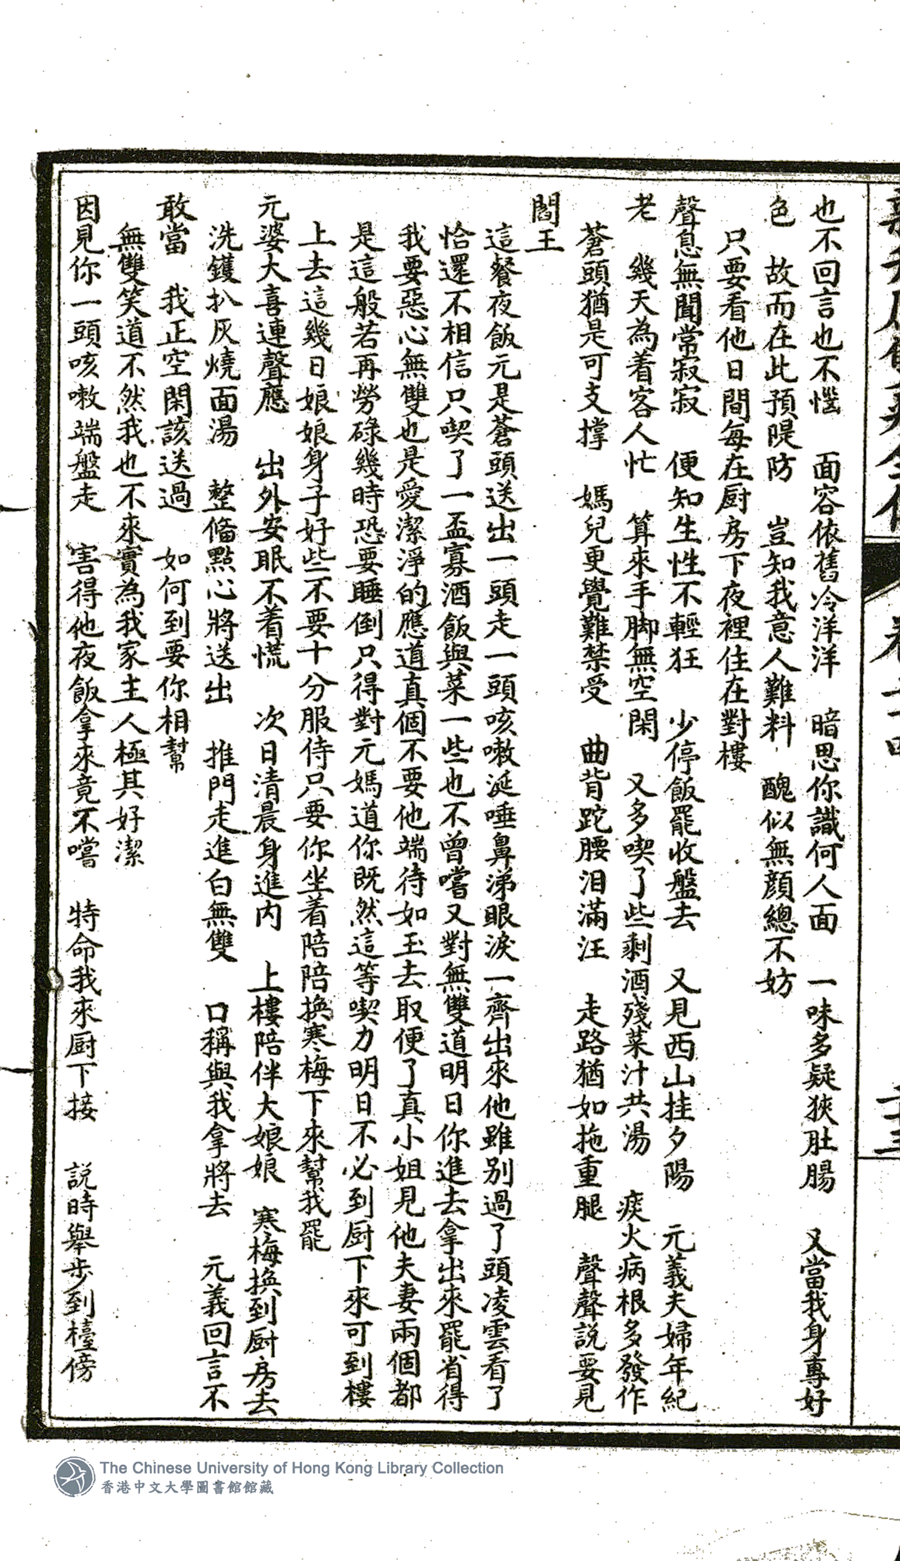 也不回言也不慌　面容依舊冷洋洋　暗思你識何人面　一味多疑狹肚腸　又當我身專好
色　故而在此預隄防　豈知我意人難料　醜似無顔總不妨
只要看他日間每在厨房下夜裡住在對樓
聲息無聞常寂寂　便知生性不輕狂　少停飯罷收盤去　又見西山挂夕陽　元義夫婦年紀
老　幾天為着客人忙　算來手脚無空閑　又多喫了些剩酒殘菜汁共湯　痰火病根多發作
蒼頭猶是可支撑　媽兒更覺難禁受　曲背跎腰泪滿汪　走路猶如拖重腿　聲聲説要見
閻王
這餐夜飯元是蒼頭送出一頭走一頭咳嗽涎唾鼻涕眼淚一齊出來他雖别過了頭凌雲看了
恰還不相信只喫了一盃寡酒飯與菜一些也不曾嚐又對無雙道明日你進去拿出來罷省得
我要惡心無雙也是愛潔淨的應道真個不要他端待如玉去取便了真小姐見他夫妻兩個都
是這般若再勞碌幾時恐要睡倒只得對元媽道你既然這等喫力明日不必到厨下來可到樓
上去這幾日娘娘身子好些不要十分服侍只要你坐着陪陪換寒梅下來幫我罷
元婆大喜連聲應　出外安眠不着慌　次日清晨身進内　上樓陪伴大娘娘　寒梅換到厨房去
洗鑊扒灰燒面湯　整備點心將送出　推門走進白無雙　口稱與我拿將去　元義回言不
敢當　我正空閑該送過　如何到要你相幫
無雙笑道不然我也不來實為我家主人極其好潔
因見你一頭咳嗽端盤走　害得他夜飯拿來竟不嚐　特命我來厨下接　説時舉步到檯傍
The Chinese University of Hong Kong Library Collection
香港中文大學圖書館館藏